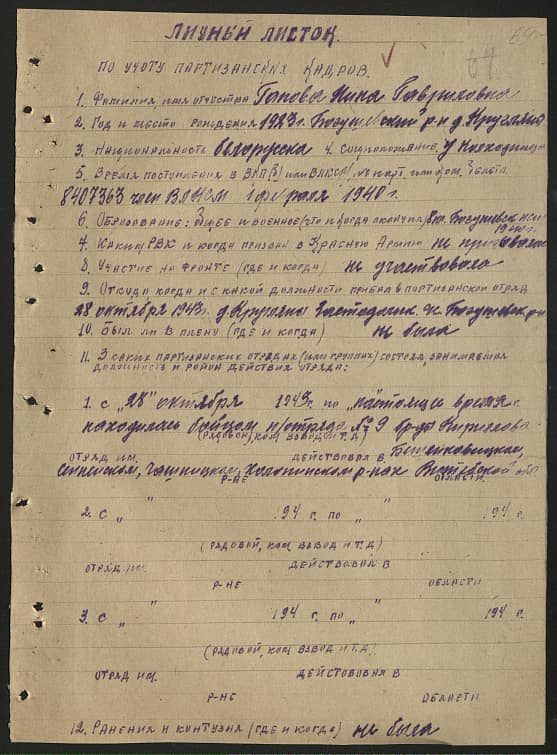 ЛИЧНЫЙ ЛИСТОК.
69
64
ПО УЧОТУ ПАРТИЗАНСКИХ КАДРОВ.
1. Фамилия, имя отчества Гапова Нина Гавриловна
2. Год и место рождения 1923 г. Богушевский р-н д.
3. Национальность белоруска 4. Соцположение у
5. Время поступления в ВКП(б) или ВЛКСМ, № парт. или ком. билета
8407363 член ВЛКСМ февраля 1940 г.
6. Образование: общее и военное (что и когда окончил) Богушевск
1940 г.
7. Каким РВК и когда призван в Красную Армию не
8. Участие на фронте (где и когда) не участвовала
9. Откуда когда и с какой должности прибыл в партизанский отряд
28 октября 1943 г. д. Богушевск р-н
10. Был ли в плену (где и когда) не была
11. В каких партизанских отрядах (или группах) состоял, занимаемая
должность и район действия отряда:
1. с "28" октября 1943 г. по "настоящ время
находилась бойцом п/отряда № 9 бр-ды Кирилова
(РЯДОВОЙ, КОМ. ВЗВОД И Т.Д)
ОТРЯД ИМ. ДЕЙСТВОВАЛ В Бешенковицком,
Сенненском, Чашницком, Холопинском р-нах Витебской обл
Р-НЕ ОБЛАСТИ.
2. с " " 194 г. по " " 194 г.
(РЯДОВОЙ, КОМ ВЗВОД И.Т.Д)
ОТРЯД ИМ. ДЕЙСТВОВАЛ В
Р-НЕ ОБЛАСТИ
3. с " " 194 г. по " " 194 г.
(РЯДОВОЙ, КОМ ВЗВОД И Т.Д.)
ОТРЯД ИМ. ДЕЙСТВОВАЛ В
Р-НЕ ОБЛАСТИ
12. Ранения и контузия (где и когда) не была